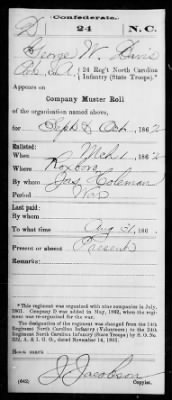 Confederate.
D 24 N. C.
George W. Davis
24 Reg't North Carolina
Infantry (State Troops).*
Appears on
Company Muster Roll
of the organization named above,
for Sept & Oct, 1862
Enlisted:
When Mch 1, 1862
Where Roxboro
By whom Jas Coleman
Period War
Last paid:
By whom
To what time Aug 31, 186
Present or absent Present
Remarks:
*This regiment was organized with nine companies in July,
1861. Company D was added in May, 1862, when the regi-
ment was re-organized for the war.
The designation of the regiment was changed from the 14th
Regiment North Carolina Infantry (Volunteers) to the 24th
Regiment North Carolina Infantry (State Troops) by S. O. No.
222, A. & I. G. O., dated November 14, 1861.
Book mark:
J Jacobson
(642) Copyist.